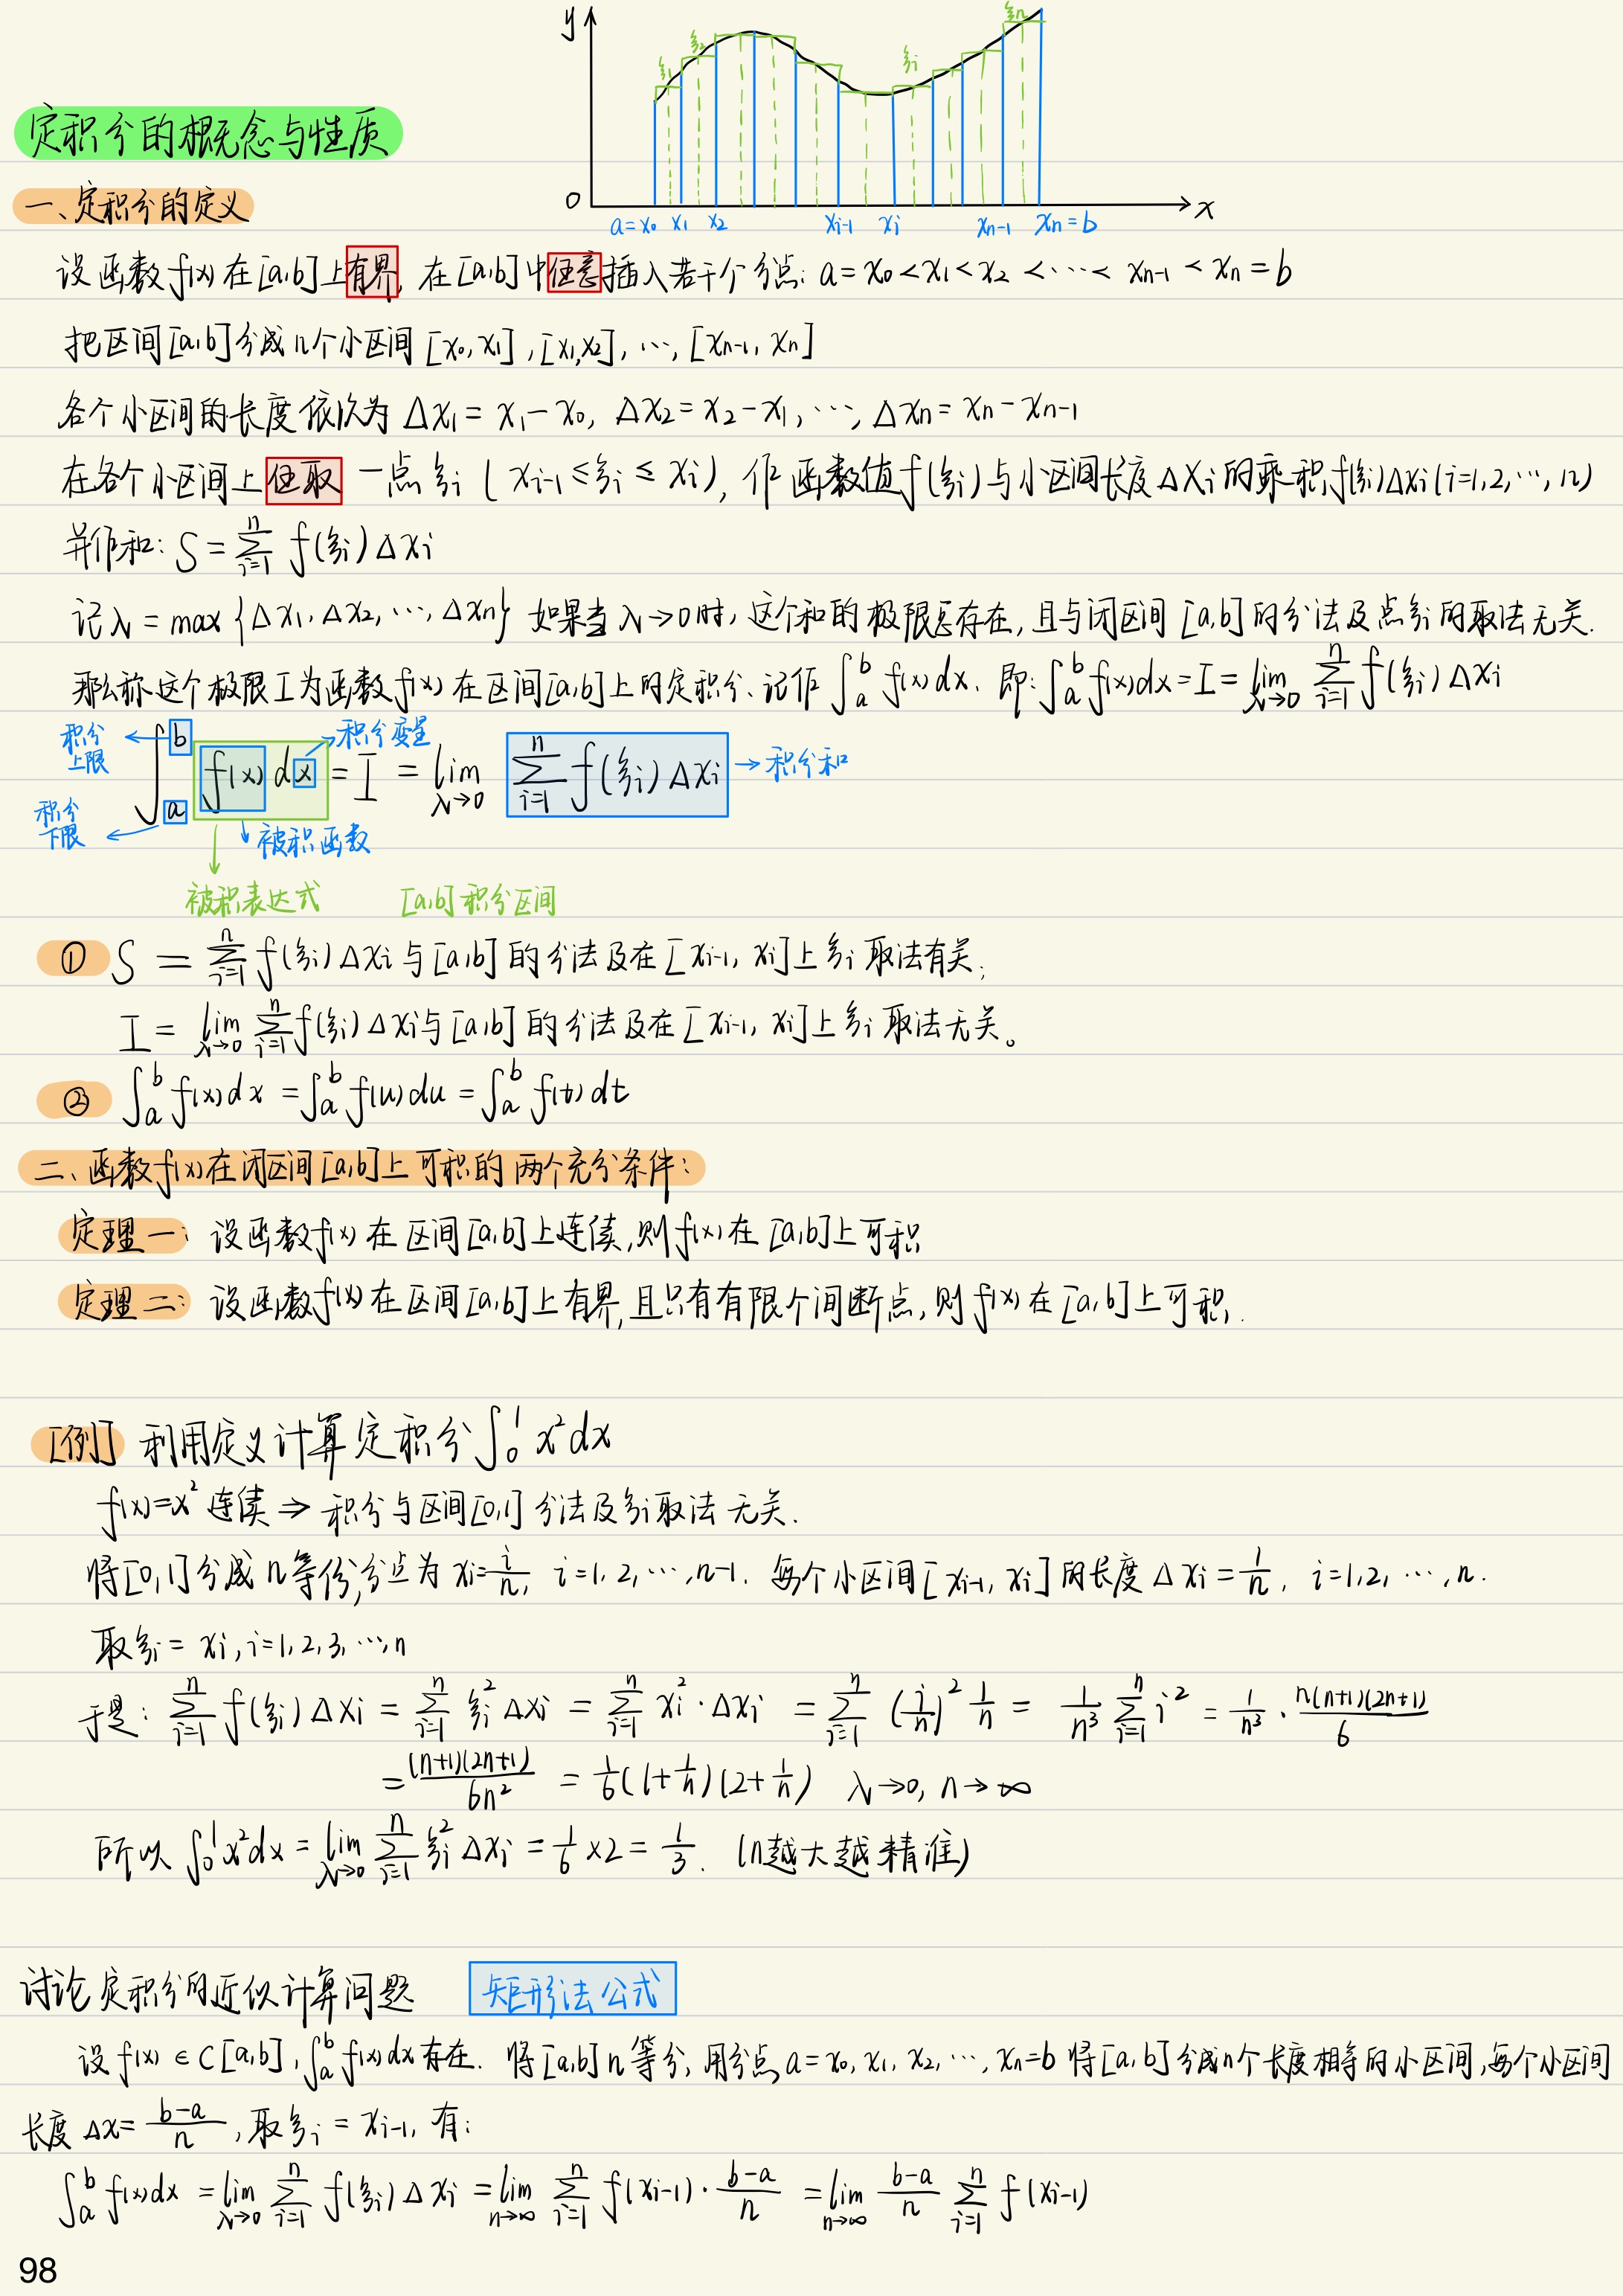 y
ξ₁ ξ₂ ξᵢ ξₙ
定积分的概念与性质
一、定积分的定义
0 x
a=x₀ x₁ x₂ xᵢ₋₁ xᵢ xₙ₋₁ xₙ=b
设函数f(x)在[a,b]上有界, 在[a,b]中任意插入若干个分点: a=x₀<x₁<x₂<⋯<xₙ₋₁<xₙ=b
把区间[a,b]分成n个小区间[x₀,x₁],[x₁,x₂],⋯,[xₙ₋₁,xₙ]
各个小区间的长度依次为 Δx₁=x₁-x₀, Δx₂=x₂-x₁,⋯,Δxₙ=xₙ-xₙ₋₁
在各个小区间上任取一点ξᵢ(xᵢ₋₁≤ξᵢ≤xᵢ), 作函数值f(ξᵢ)与小区间长度Δxᵢ的乘积f(ξᵢ)Δxᵢ(i=1,2,⋯,n)
并作和: S=∑ⁿᵢ₌₁ f(ξᵢ)Δxᵢ
记λ=max{Δx₁,Δx₂,⋯,Δxₙ} 如果当λ→0时, 这个和的极限总存在, 且与闭区间[a,b]的分法及点ξᵢ的取法无关.
那么称这个极限I为函数f(x)在区间[a,b]上的定积分、记作∫ₐᵇ f(x)dx. 即: ∫ₐᵇ f(x)dx=I=lim_{λ→0} ∑ⁿᵢ₌₁ f(ξᵢ)Δxᵢ
积分上限 积分变量
∫ₐᵇ f(x)dx=I=lim_{λ→0} ∑ⁿᵢ₌₁ f(ξᵢ)Δxᵢ →积分和
积分下限 被积函数
被积表达式 [a,b]积分区间
① S=∑ⁿᵢ₌₁ f(ξᵢ)Δxᵢ与[a,b]的分法及在[xᵢ₋₁,xᵢ]上ξᵢ取法有关;
I=lim_{λ→0} ∑ⁿᵢ₌₁ f(ξᵢ)Δxᵢ与[a,b]的分法及在[xᵢ₋₁,xᵢ]上ξᵢ取法无关。
② ∫ₐᵇ f(x)dx=∫ₐᵇ f(u)du=∫ₐᵇ f(t)dt
二、函数f(x)在闭区间[a,b]上可积的两个充分条件:
定理一: 设函数f(x)在区间[a,b]上连续,则f(x)在[a,b]上可积
定理二: 设函数f(x)在区间[a,b]上有界,且只有有限个间断点,则f(x)在[a,b]上可积.
[例] 利用定义计算定积分∫₀¹ x²dx
f(x)=x² 连续 ⇒ 积分与区间[0,1]分法及ξᵢ取法无关.
将[0,1]分成n等份,分点为xᵢ=i/n, i=1,2,⋯,n-1. 每个小区间[xᵢ₋₁,xᵢ]的长度Δxᵢ=1/n, i=1,2,⋯,n.
取ξᵢ=xᵢ,i=1,2,3,⋯,n
于是: ∑ⁿᵢ₌₁ f(ξᵢ)Δxᵢ=∑ⁿᵢ₌₁ ξᵢ²Δxᵢ=∑ⁿᵢ₌₁ xᵢ²·Δxᵢ=∑ⁿᵢ₌₁ (i/n)² 1/n=1/n³ ∑ⁿᵢ₌₁ i²=1/n³·n(n+1)(2n+1)/6
=(n+1)(2n+1)/6n²=1/6(1+1/n)(2+1/n) λ→0, n→∞
所以∫₀¹ x²dx=lim_{λ→0} ∑ⁿᵢ₌₁ ξᵢ²Δxᵢ=1/6×2=1/3. (n越大越精准)
讨论定积分的近似计算问题 矩形法公式
设f(x)∈C[a,b],∫ₐᵇ f(x)dx存在. 将[a,b]n等分,用分点a=x₀,x₁,x₂,⋯,xₙ=b将[a,b]分成n个长度相等的小区间,每个小区间
长度Δx=(b-a)/n,取ξᵢ=xᵢ₋₁,有:
∫ₐᵇ f(x)dx=lim_{λ→0} ∑ⁿᵢ₌₁ f(ξᵢ)Δxᵢ=lim_{n→∞} ∑ⁿᵢ₌₁ f(xᵢ₋₁)·(b-a)/n=lim_{n→∞} (b-a)/n ∑ⁿᵢ₌₁ f(xᵢ₋₁)
98